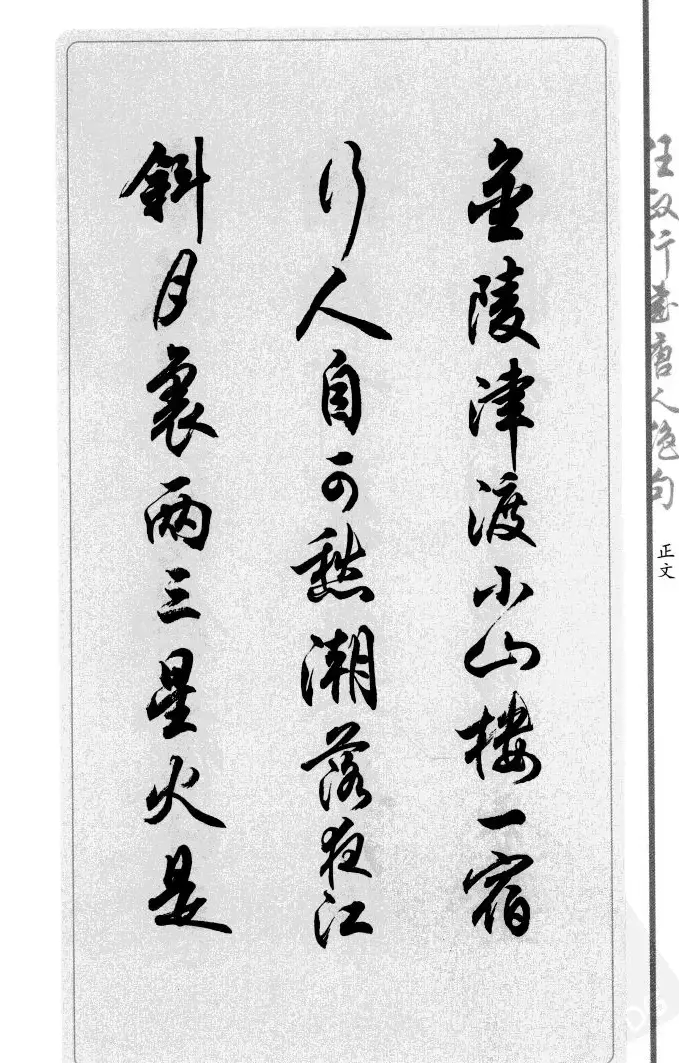 金陵津渡小山楼一宿
行人自可愁潮落夜江
斜月里两三星火是
任政行书唐人绝句
正文